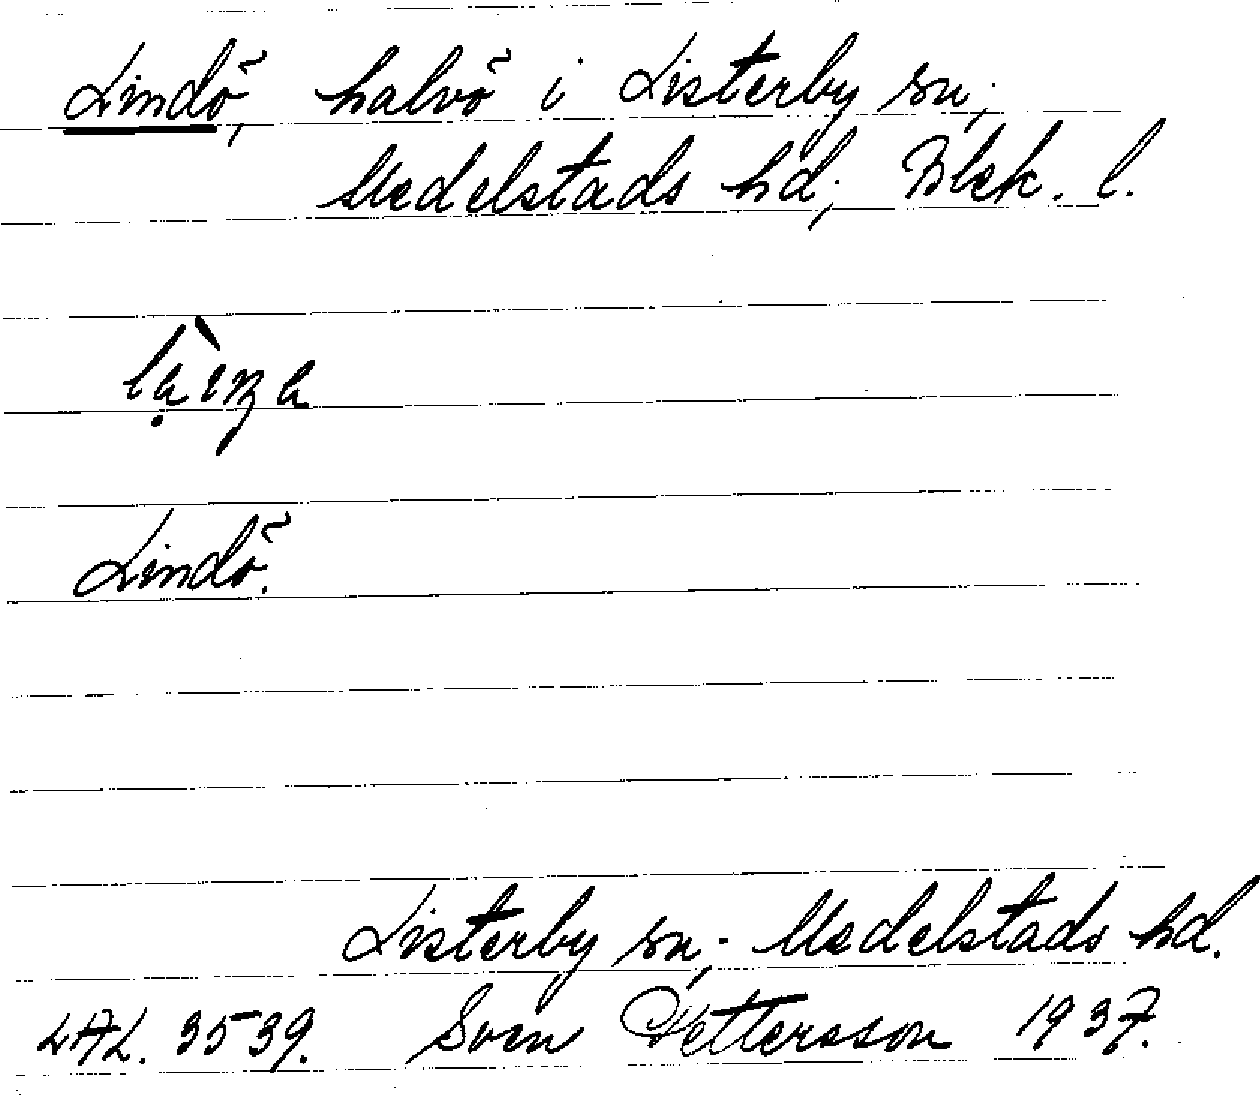 Lindö, halvö i Listerby sn,
Medelstads hd, Blek. l.
Lindö.
Listerby sn, Medelstads hd.
LAL. 3539. Sven Pettersson 1937.